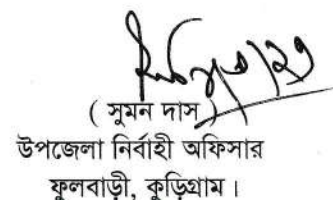 ( সুমন দাস )
উপজেলা নির্বাহী অফিসার
ফুলবাড়ী, কুড়িগ্রাম।